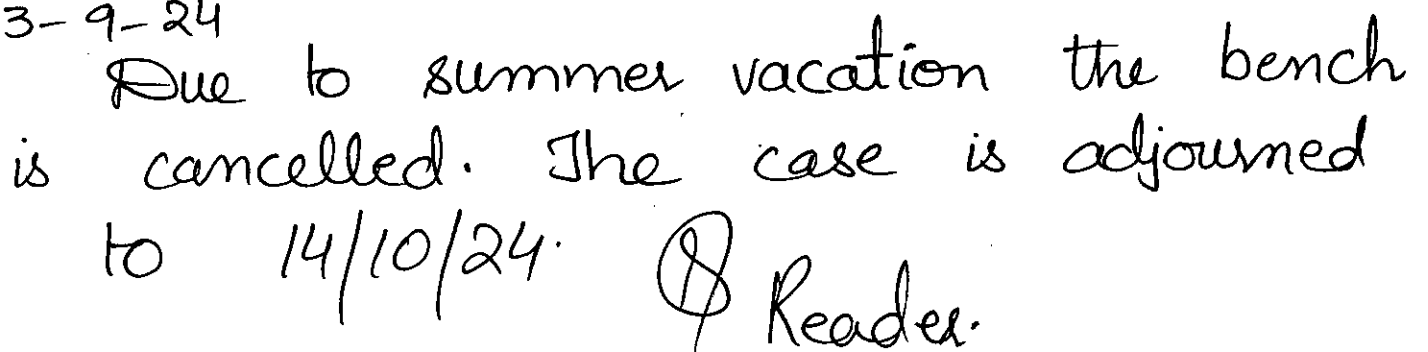 3-9-24
Due to summer vacation the bench
is cancelled. The case is adjourned
to 14/10/24.
Reader.